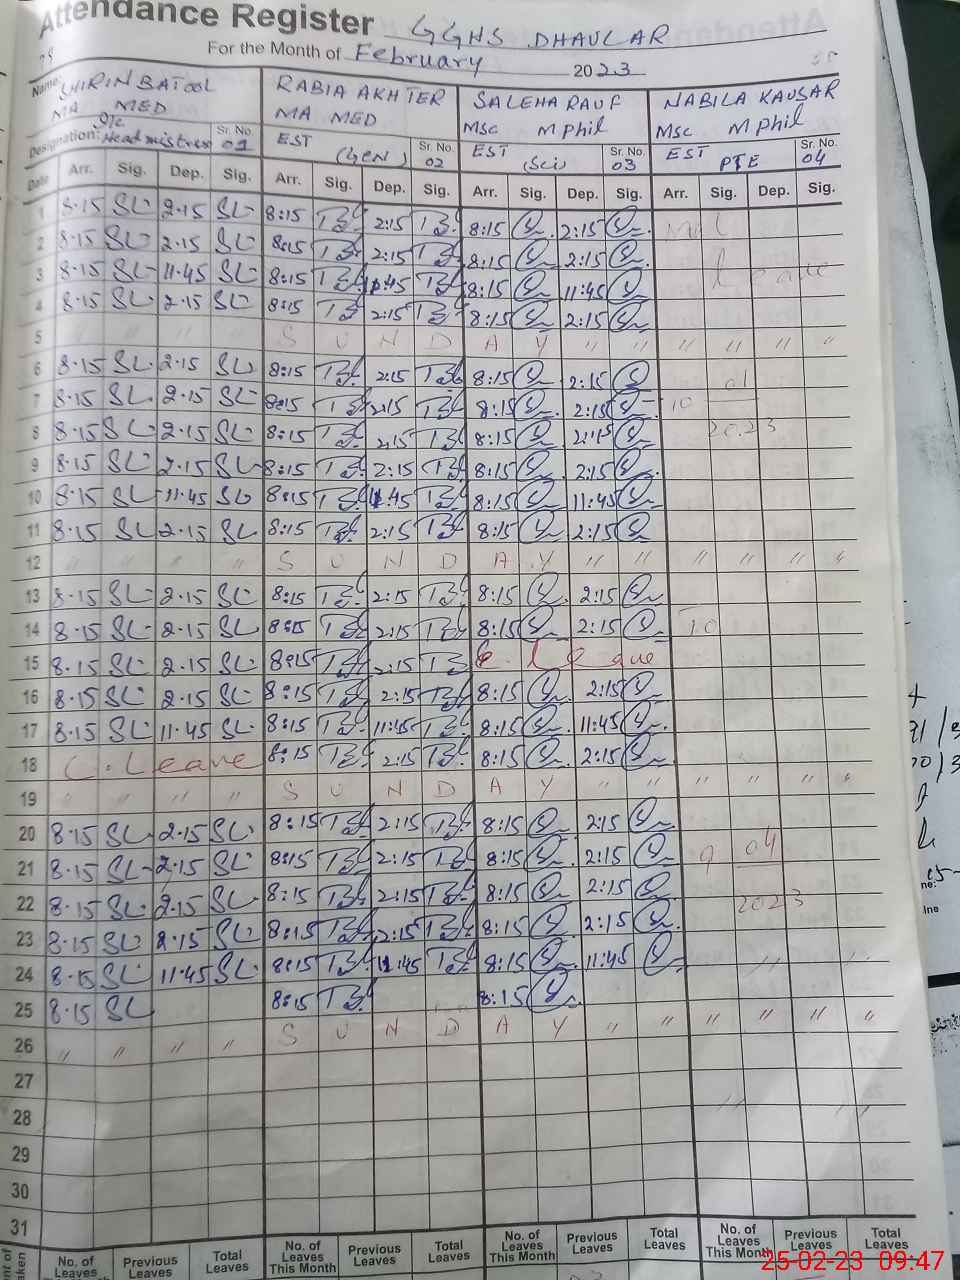 Attendance Register GGHS DHAULAR
For the Month of February 2023
Name: SHIRIN BATOOL RABIA AKHTER SALEHA RAUF NABILA KAUSAR
MA MED MA MED MSc MPhil MSc MPhil
Designation: O/c Headmistress Sr. No. 01 EST (GEN) Sr. No. 02 EST (Sci) Sr. No. 03 EST PTE Sr. No. 04
Date Arr. Sig. Dep. Sig. Arr. Sig. Dep. Sig. Arr. Sig. Dep. Sig. Arr. Sig. Dep. Sig.
1 8.15 SL 2.15 SL 8:15 2:15 8:15 2:15
2 8.15 SL 2.15 SL 8:15 2:15 8:15 2:15
3 8.15 SL 11.45 SL 8:15 11:45 8:15 11:45 Leave
4 8.15 SL 2.15 SL 8:15 2:15 8:15 2:15
5 " " " " S U N D A Y " " " " " "
6 8.15 SL 2.15 SL 8:15 2:15 8:15 2:15 01
7 8.15 SL 2.15 SL 8:15 2:15 8:15 2:15 10
8 8.15 SL 2.15 SL 8:15 2:15 8:15 2:15 2023
9 8.15 SL 2.15 SL 8:15 2:15 8:15 2:15
10 8.15 SL 11.45 SL 8:15 11:45 8:15 11:45
11 8.15 SL 2.15 SL 8:15 2:15 8:15 2:15
12 " " " " S U N D A Y " " " " " "
13 8.15 SL 2.15 SL 8:15 2:15 8:15 2:15
14 8.15 SL 2.15 SL 8:15 2:15 8:15 2:15 To
15 8.15 SL 2.15 SL 8:15 2:15 C. Leave
16 8.15 SL 2.15 SL 8:15 2:15 8:15 2:15
17 8.15 SL 11.45 SL 8:15 11:45 8:15 11:45
18 C. Leave 8:15 2:15 8:15 2:15
19 " " " " S U N D A Y " " " " " "
20 8.15 SL 2.15 SL 8:15 2:15 8:15 2:15
21 8.15 SL 2.15 SL 8:15 2:15 8:15 2:15 9 04
22 8.15 SL 2.15 SL 8:15 2:15 8:15 2:15 2023
23 8.15 SL 2.15 SL 8:15 2:15 8:15 2:15
24 8.15 SL 11.45 SL 8:15 11:45 8:15 11:45
25 8.15 SL 8:15 8:15
26 " " " " S U N D A Y " " " " " "
27
28
29
30
31
No. of Leaves Previous Leaves Total Leaves No. of Leaves This Month Previous Leaves Total Leaves No. of Leaves This Month Previous Leaves Total Leaves No. of Leaves This Month Previous Leaves Total Leaves
25-02-23 09:47